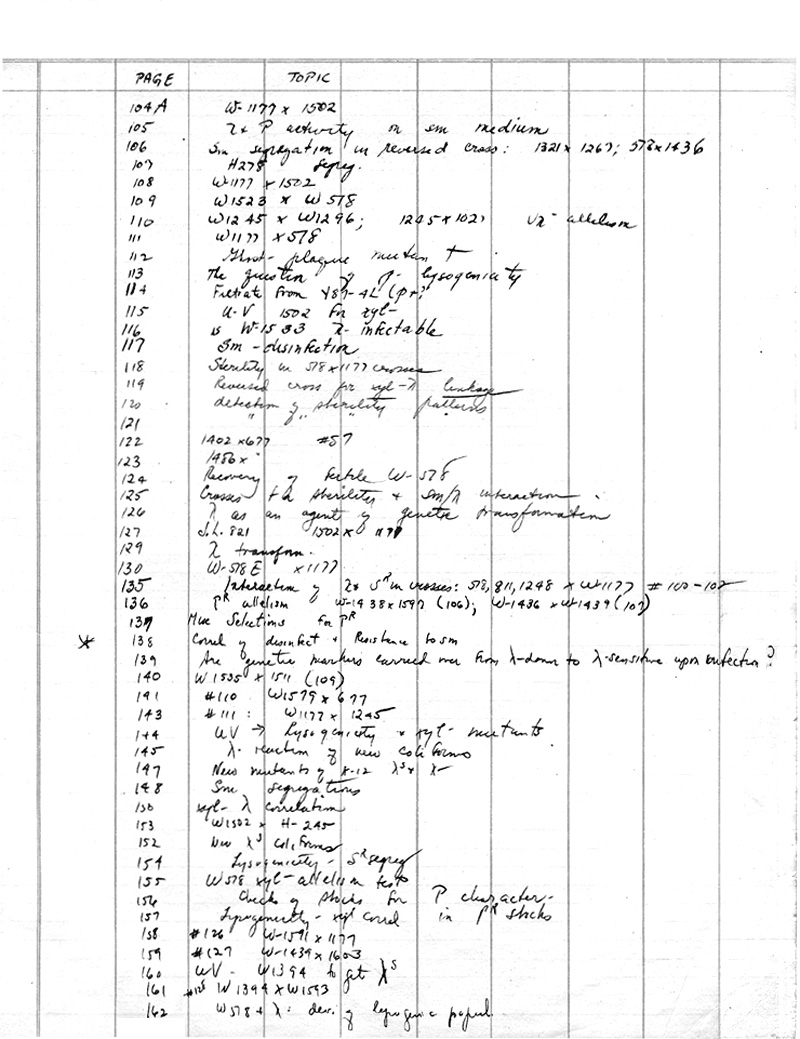 PAGE TOPIC
104A W-1177 x 1502
105 λ & P activity on sm medium
106 Sm segregation in reversed cross: 1321 x 1267; 578 x 1436
107 H278 segreg.
108 W-1177 x 1502
109 W1523 x W578
110 W1245 x W1296; 1245 x 1027 λ- allelism
111 W1177 x 578
112 Ghost-plaque mutant
113 The question of P- lysogenicity
114 Filtrate from Y87-4L (Pr?
115 U-V 1502 for xyl-
116 is W-1533 λ-infectable
117 Sm-disinfection
118 Sterility in 578 x 1177 crosses
119 Reversed cross for xyl-λ linkage
120 detection of sterility patterns
121 " " "
122 1402 x 677 #57
123 1486 x "
124 Recovery of fertile W-578
125 Crosses sterility + sm/λ interaction
126 λ as an agent of genetic transformation
127 J.L. 821 1502 x 1177
129 λ transform.
130 W-578E x 1177
135 Interaction of λ & S^R in crosses: 578, 811, 1248 x W-1177 #100-102
136 P^R allelism W-1438 x 1597 (106); W-1436 x W-1439 (107)
137 Mise Selections for P^R
* 138 Correl of disinfect + Resistance to sm
139 Are genetic markers carried over from λ-donor to λ-sensitive upon infection?
140 W1535 x 1511 (109)
141 #110 W1579 x 677
143 #111: W1177 x 1245
144 UV → Lysogenicity & xyl- mutants
145 λ-reaction of new coliforms
147 New mutants of K-12 λ^s & λ-
148 Sm segregations
150 xyl-λ correlation
153 W1502 x H-245
152 New λ^s coliforms
154 Lysogenicity - S^R segreg
155 W578 xyl-allelism tests
156 Checks of stocks for P character-
157 Lysogenicity-xyl correl in P^R stocks
158 #126 W-1591 x 1177
159 #127 W-1439 x 1603
160 UV - W1394 to get λ^s
161 #128 W1394 x W1593
162 W578 + λ: dev. of lysogenic popul.